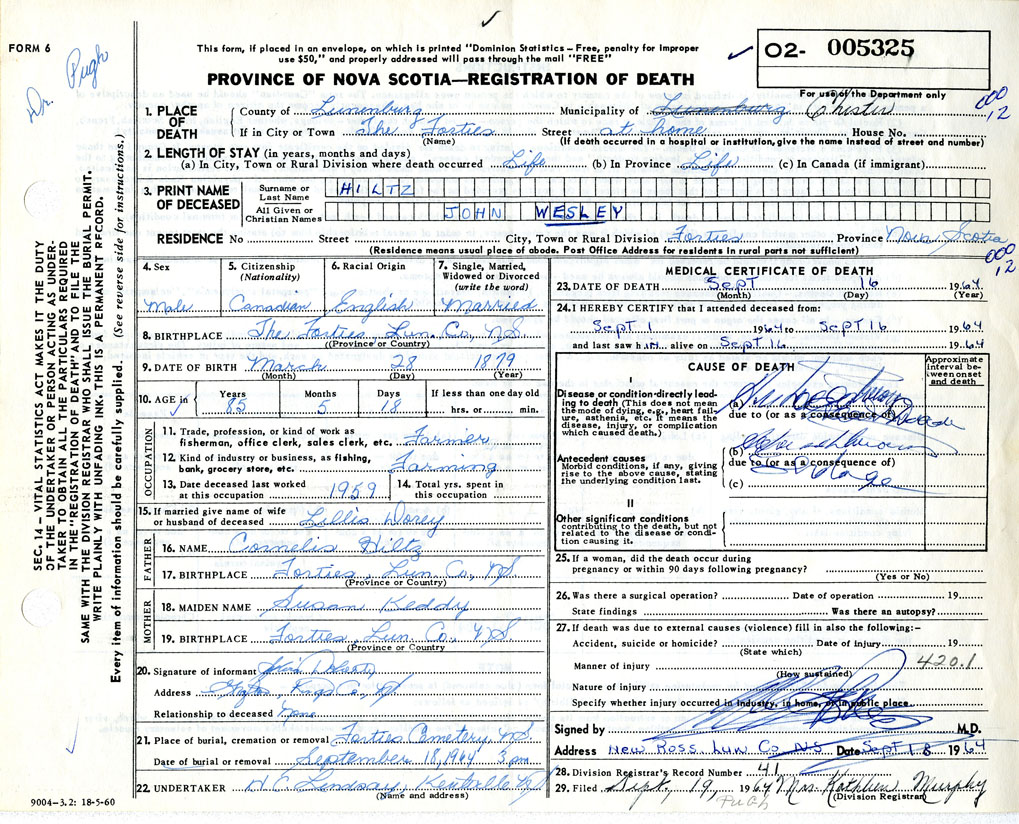 FORM 6
Dr. Pugh
This form, if placed in an envelope, on which is printed "Dominion Statistics – Free, penalty for improper
use $50," and properly addressed will pass through the mail "FREE"
PROVINCE OF NOVA SCOTIA—REGISTRATION OF DEATH
O2- 005325
For use of the Department only
000
12
SEC. 14 – VITAL STATISTICS ACT MAKES IT THE DUTY
OF THE UNDERTAKER OR PERSON ACTING AS UNDER-
TAKER TO OBTAIN ALL THE PARTICULARS REQUIRED
IN THE "REGISTRATION OF DEATH" AND TO FILE THE
SAME WITH THE DIVISION REGISTRAR WHO SHALL ISSUE THE BURIAL PERMIT.
WRITE PLAINLY WITH UNFADING INK. THIS IS A PERMANENT RECORD.
Every item of information should be carefully supplied. (See reverse side for instructions.)
1. PLACE OF DEATH
County of Lunenburg Municipality of Lunenburg Chester
If in City or Town The Forties Street at home House No.
(Name) (If death occurred in a hospital or institution, give the name instead of street and number)
2. LENGTH OF STAY (in years, months and days)
(a) In City, Town or Rural Division where death occurred Life (b) In Province Life (c) In Canada (if immigrant)
3. PRINT NAME OF DECEASED
Surname or Last Name HILTZ
All Given or Christian Names JOHN WESLEY
RESIDENCE No Street City, Town or Rural Division Forties Province Nova Scotia
(Residence means usual place of abode. Post Office Address or residents in rural parts not sufficient)
000
12
4. Sex Male
5. Citizenship (Nationality) Canadian
6. Racial Origin English
7. Single, Married, Widowed or Divorced (write the word) Married
8. BIRTHPLACE The Forties Lun. Co., NS
(Province or Country)
9. DATE OF BIRTH March 28 1879
(Month) (Day) (Year)
10. AGE in Years 85 Months 5 Days 18 If less than one day old hrs. or min.
OCCUPATION
11. Trade, profession, or kind of work as
fisherman, office clerk, sales clerk, etc. Farmer
12. Kind of industry or business, as fishing,
bank, grocery store, etc. Farming
13. Date deceased last worked
at this occupation 1959
14. Total yrs. spent in
this occupation
15. If married give name of wife
or husband of deceased Lillis Dorey
FATHER
16. NAME Cornelis Hiltz
17. BIRTHPLACE Forties, Lun Co., NS
(Province or Country)
MOTHER
18. MAIDEN NAME Susan Keddy
19. BIRTHPLACE Forties, Lun. Co., NS
(Province or Country
20. Signature of informant
Address Kings Co., NS
Relationship to deceased none
21. Place of burial, cremation or removal Forties Cemetery, NS
Date of burial or removal September 18, 1964 3 pm
22. UNDERTAKER H.C. Lindsay, Kentville NS
(Name and address)
9004–3.2: 18-5-60
MEDICAL CERTIFICATE OF DEATH
23. DATE OF DEATH Sept 16 1964
(Month) (Day) (Year)
24. I HEREBY CERTIFY that I attended deceased from:
Sept 1 1964 to Sept 16 1964
and last saw him alive on Sept 16 1964
CAUSE OF DEATH
Approximate interval between onset and death
I
Disease or condition directly lead-
ing to death (This does not mean
the mode of dying, e.g., heart fail-
ure, asthenia, etc. It means the
disease, injury, or complication
which caused death.)
(a)
due to (or as a consequence of)
(b)
Antecedent causes
Morbid conditions, if any, giving
rise to the above cause, stating
the underlying condition last.
due to (or as a consequence of)
(c) Old age
II
Other significant conditions
contributing to the death, but not
related to the disease or condi-
tion causing it.
25. If a woman, did the death occur during
pregnancy or within 90 days following pregnancy?
(Yes or No)
26. Was there a surgical operation? Date of operation 19
State findings Was there an autopsy?
27. If death was due to external causes (violence) fill in also the following:–
Accident, suicide or homicide? Date of injury 19
(State which)
Manner of injury 420.1
(How sustained)
Nature of injury
Specify whether injury occurred in industry, in home, or in public place
Signed by M.D.
Address New Ross Lun Co NS Date Sept 18 1964
28. Division Registrar's Record Number 41
29. Filed Sept. 19, 1964 Mrs. Kathleen Murphy
(Division Registrar)
Pugh